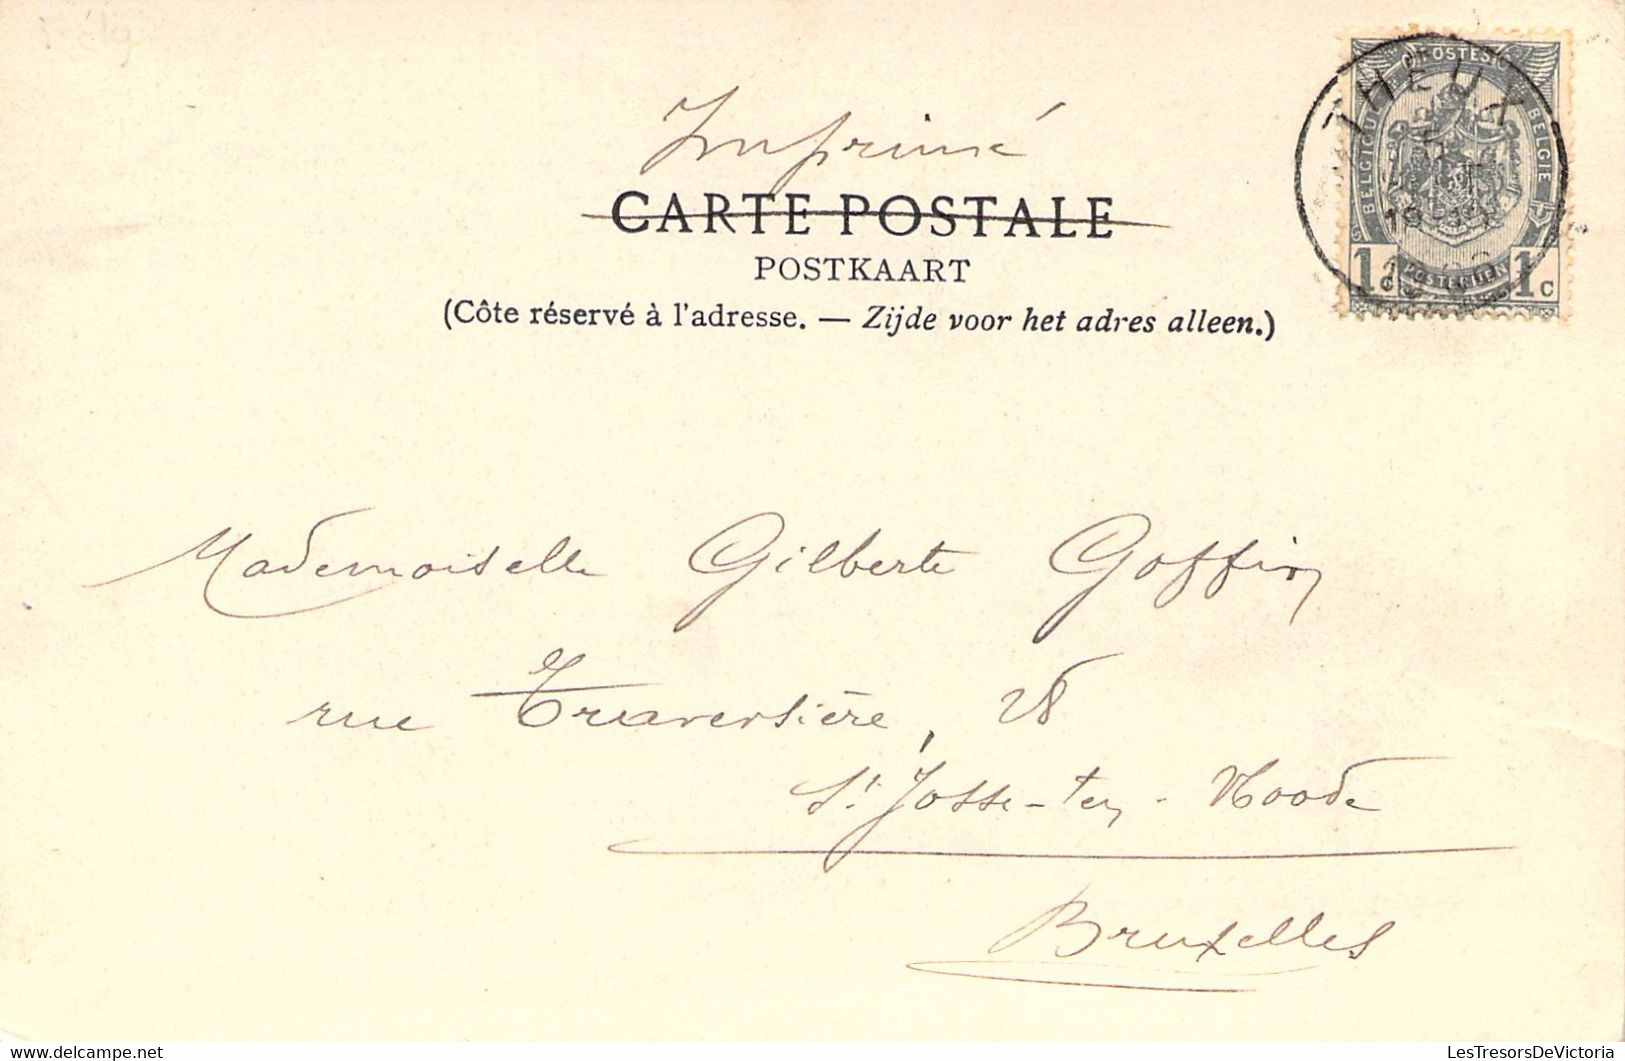 Imprimé
CARTE POSTALE
POSTKAART
(Côte réservé à l'adresse. — Zijde voor het adres alleen.)
THEUX
POSTES
BELGIQUE
BELGIE
POSTERIJEN
1c 1c
Mademoiselle Gilberte Goffin
rue Traversière, 28
St Josse-ten-Noode
Bruxelles
LesTresorsDeVictoria
www.delcampe.net